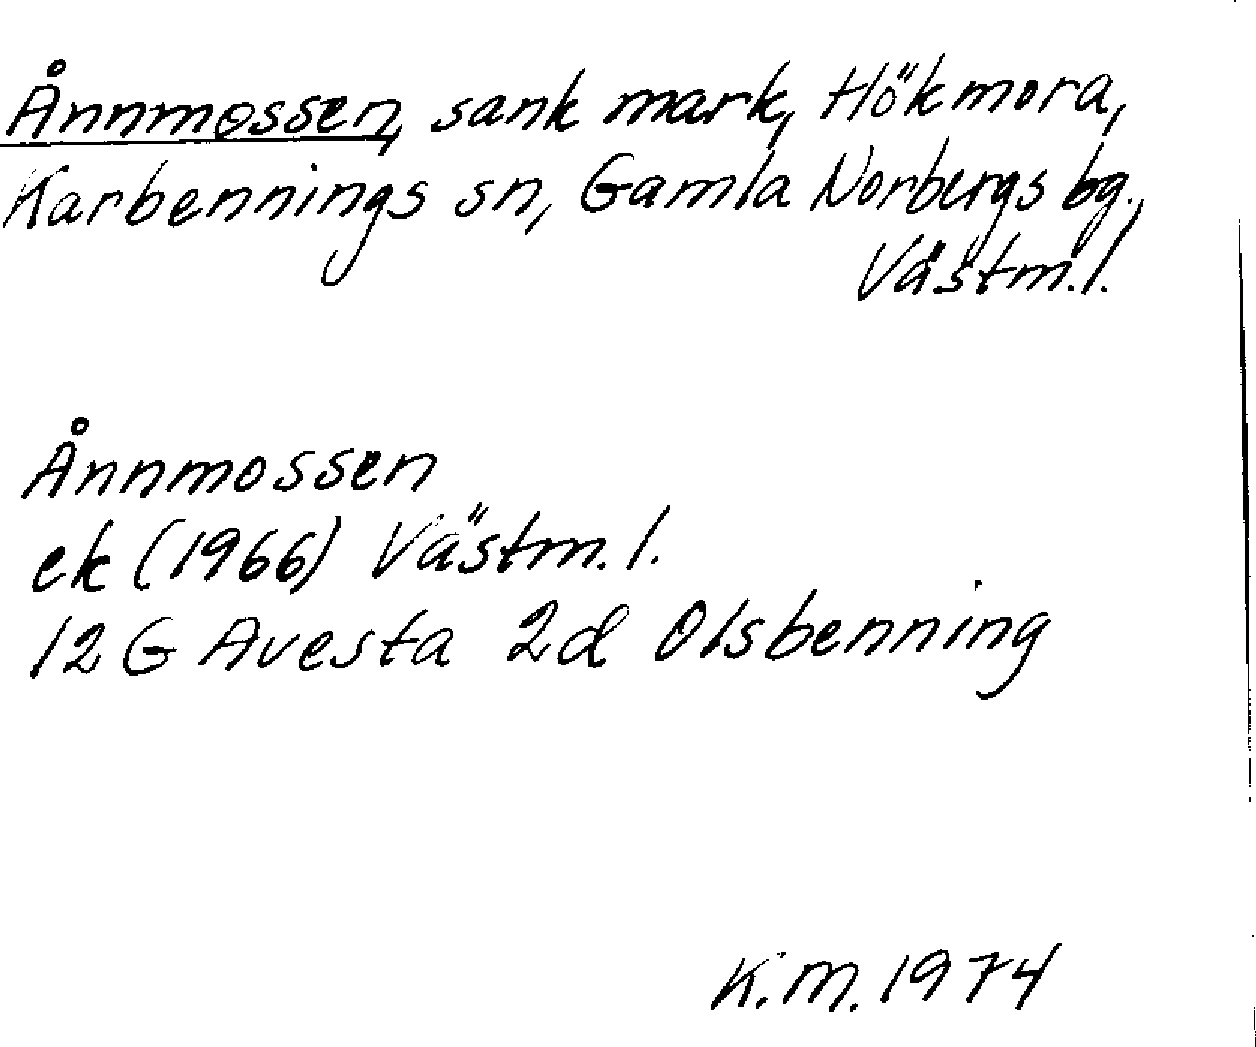 Ånnmossen, sank mark, Hökmora,
Karbennings sn, Gamla Norbergs bg.,
Västm. l.
Ånnmossen
ek (1966) Västm. l.
12 G Avesta 2d Olsbenning
K.M. 1974